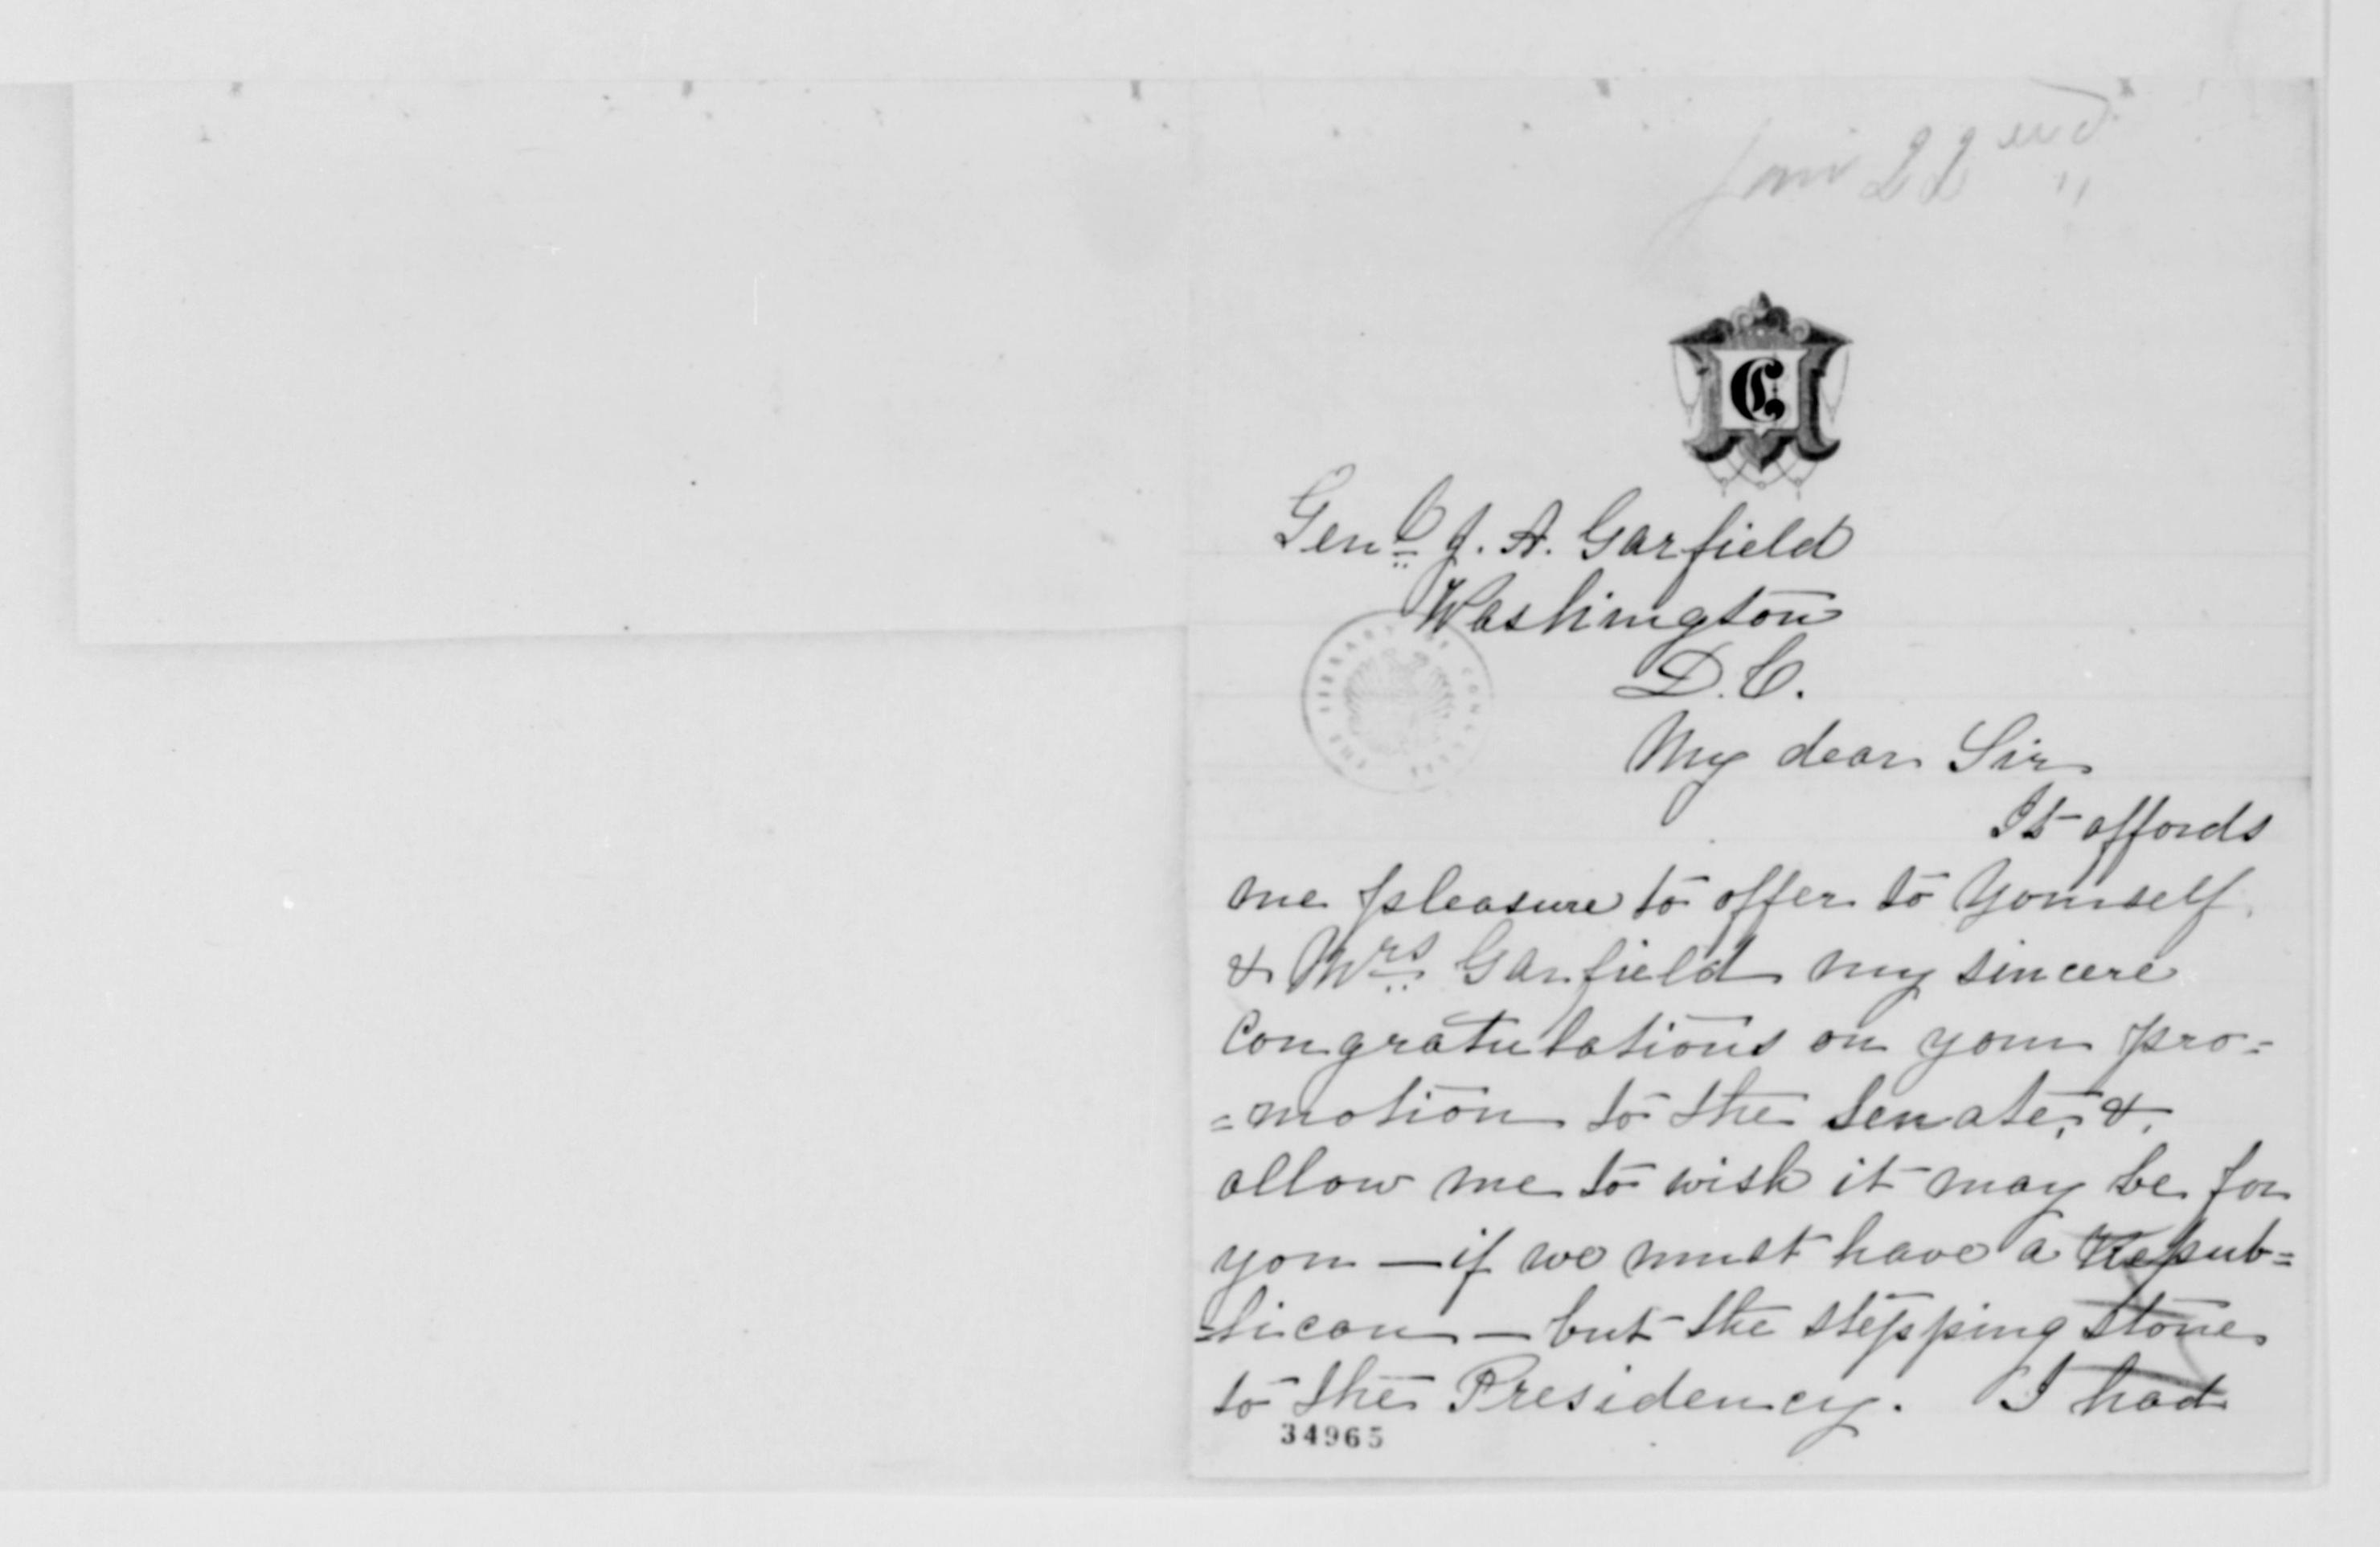 Jan 22nd
C
Genl J. A. Garfield
Washington
D.C.
THE LIBRARY OF CONGRESS
My dear Sir
It affords
me pleasure to offer to yourself
& Mrs Garfield my sincere
Congratulations on your pro=
=motion to the Senate, &
allow me to wish it may be for
you — if we must have a Repub=
=lican — but the stepping stone
to the Presidency. I had
34965